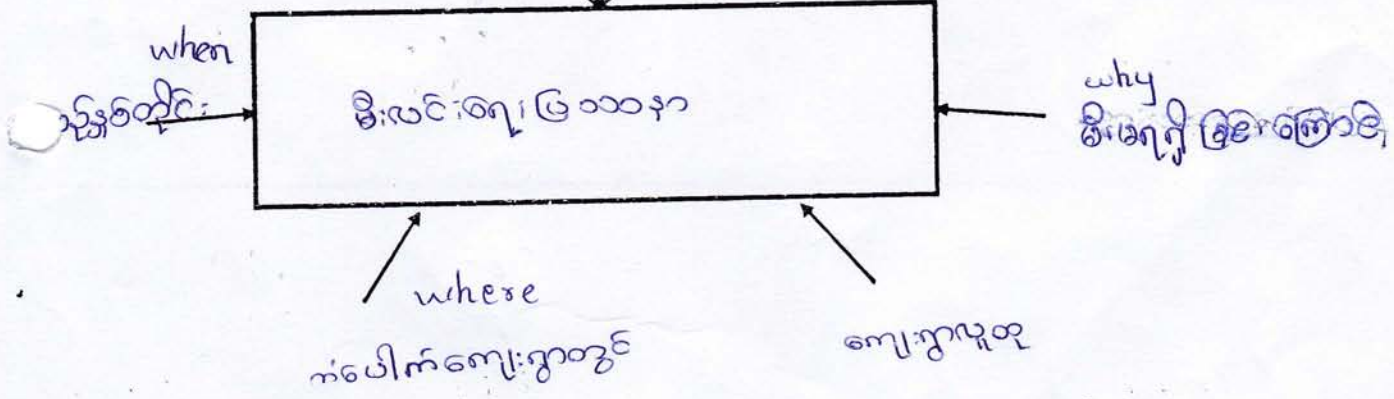 when
နှစ်တိုင်း
မီးလင်းရေးပြဿနာ
why
မီးမရရှိခြင်းကြောင့်
where
ကံပေါက်ကျေးရွာတွင်
ကျေးရွာလူထု